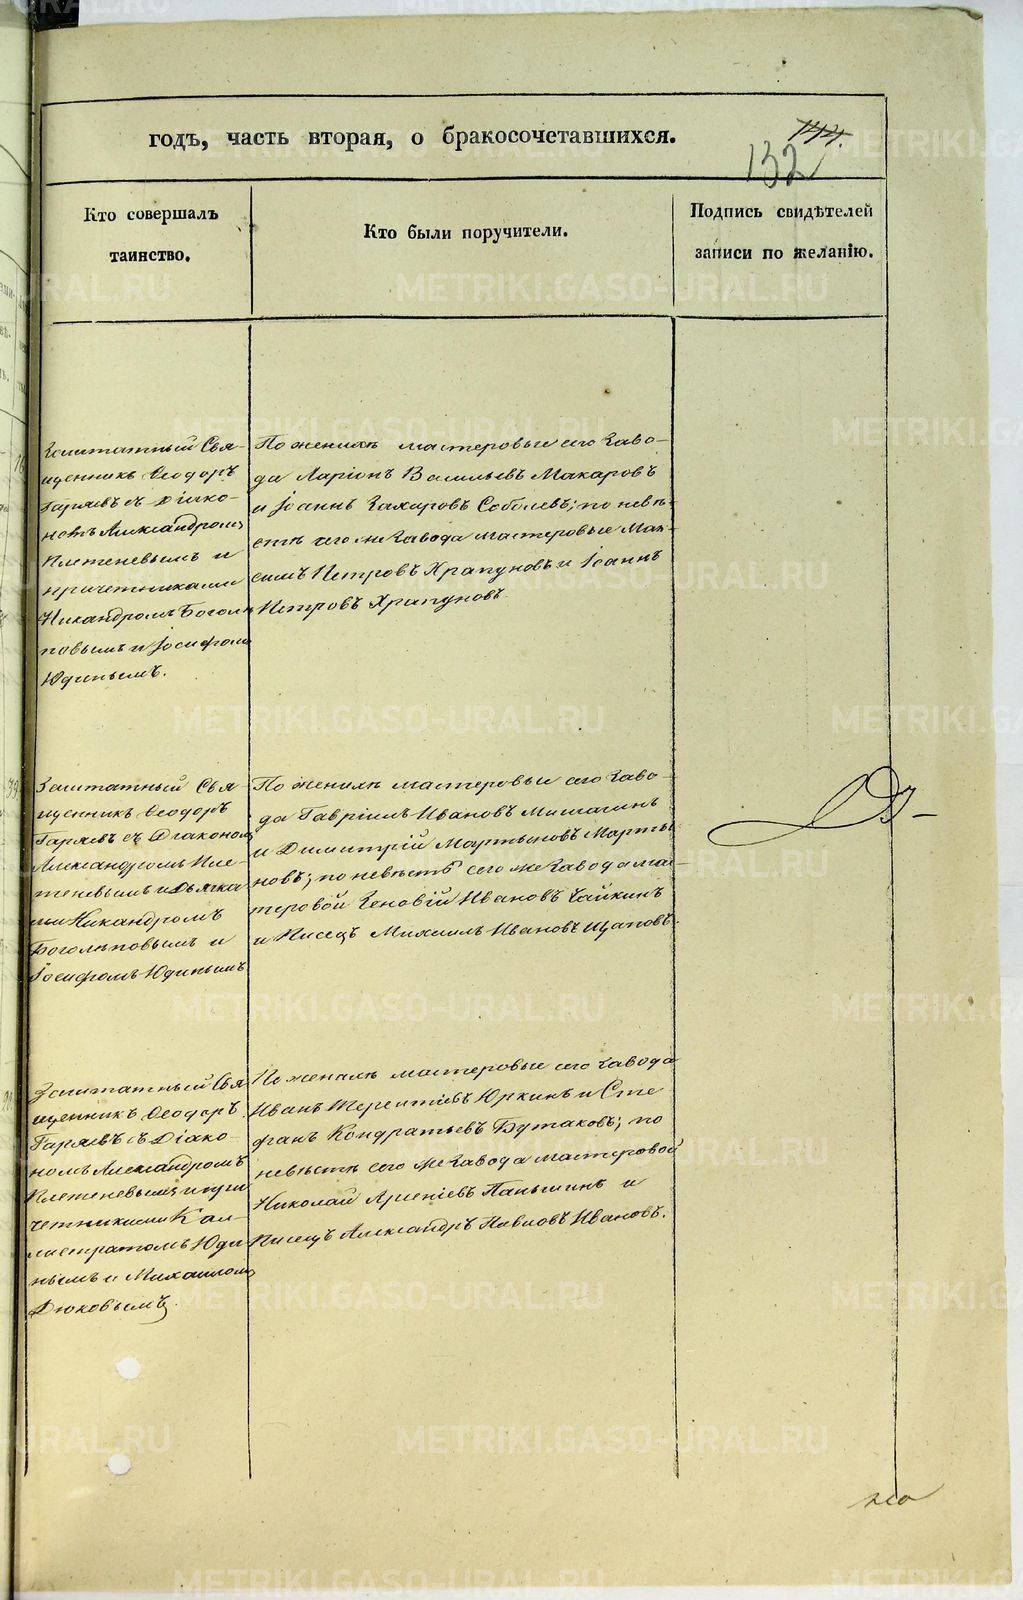 годъ, часть вторая, о бракосочетавшихся.
144.
132
Кто совершалъ
таинство.
Кто были поручители.
Подпись свидѣтелей
записи по желанію.
Заштатный Свя-
щенникъ Ѳеодоръ
Гаряевъ съ Діако-
номъ Александромъ
Плетеневымъ и
причетниками
Никандромъ Боголѣ
повымъ и Іосифомъ
Юдинымъ.
По женихѣ мастеровые сего Заво-
да Ларіонъ Васильевъ Макаровъ
и Іоаннъ Захаровъ Соболевъ; по невѣ-
стѣ сего же Завода мастеровые Мак-
симъ Петровъ Храпуновъ и Іоаннъ
Петровъ Храпуновъ.
Заштатный Свя-
щенникъ Ѳеодоръ
Гаряевъ съ Діакономъ
Александромъ Пле-
теневымъ и Дьячка-
ми Никандромъ
Боголѣповымъ и
Іосифомъ Юдинымъ
По женихѣ мастеровые сего Заво-
да Гавріилъ Ивановъ Мишагинъ
и Димитрій Мартыновъ Марты
новъ; по невѣстѣ сего же Завода мас-
теровой Зеновій Ивановъ Чайкинъ
и Писецъ Михаилъ Ивановъ Щаповъ.
Заштатный Свя
щенникъ Ѳеодоръ
Гаряевъ съ Діако-
номъ Александромъ
Плетеневымъ и при
четниками Кал-
листратомъ Юди
нымъ и Михаиломъ
Дюковымъ.
По женихѣ мастеровые сего Завода
Иванъ Терентіевъ Юркинъ и Сте
фанъ Кондратьевъ Бутаковъ; по
невѣстѣ сего же Завода мастеровой
Николай Арсеніевъ Паньшинъ и
Писецъ Александръ Павловъ Ивановъ.
METRIKI.GASO-URAL.RU